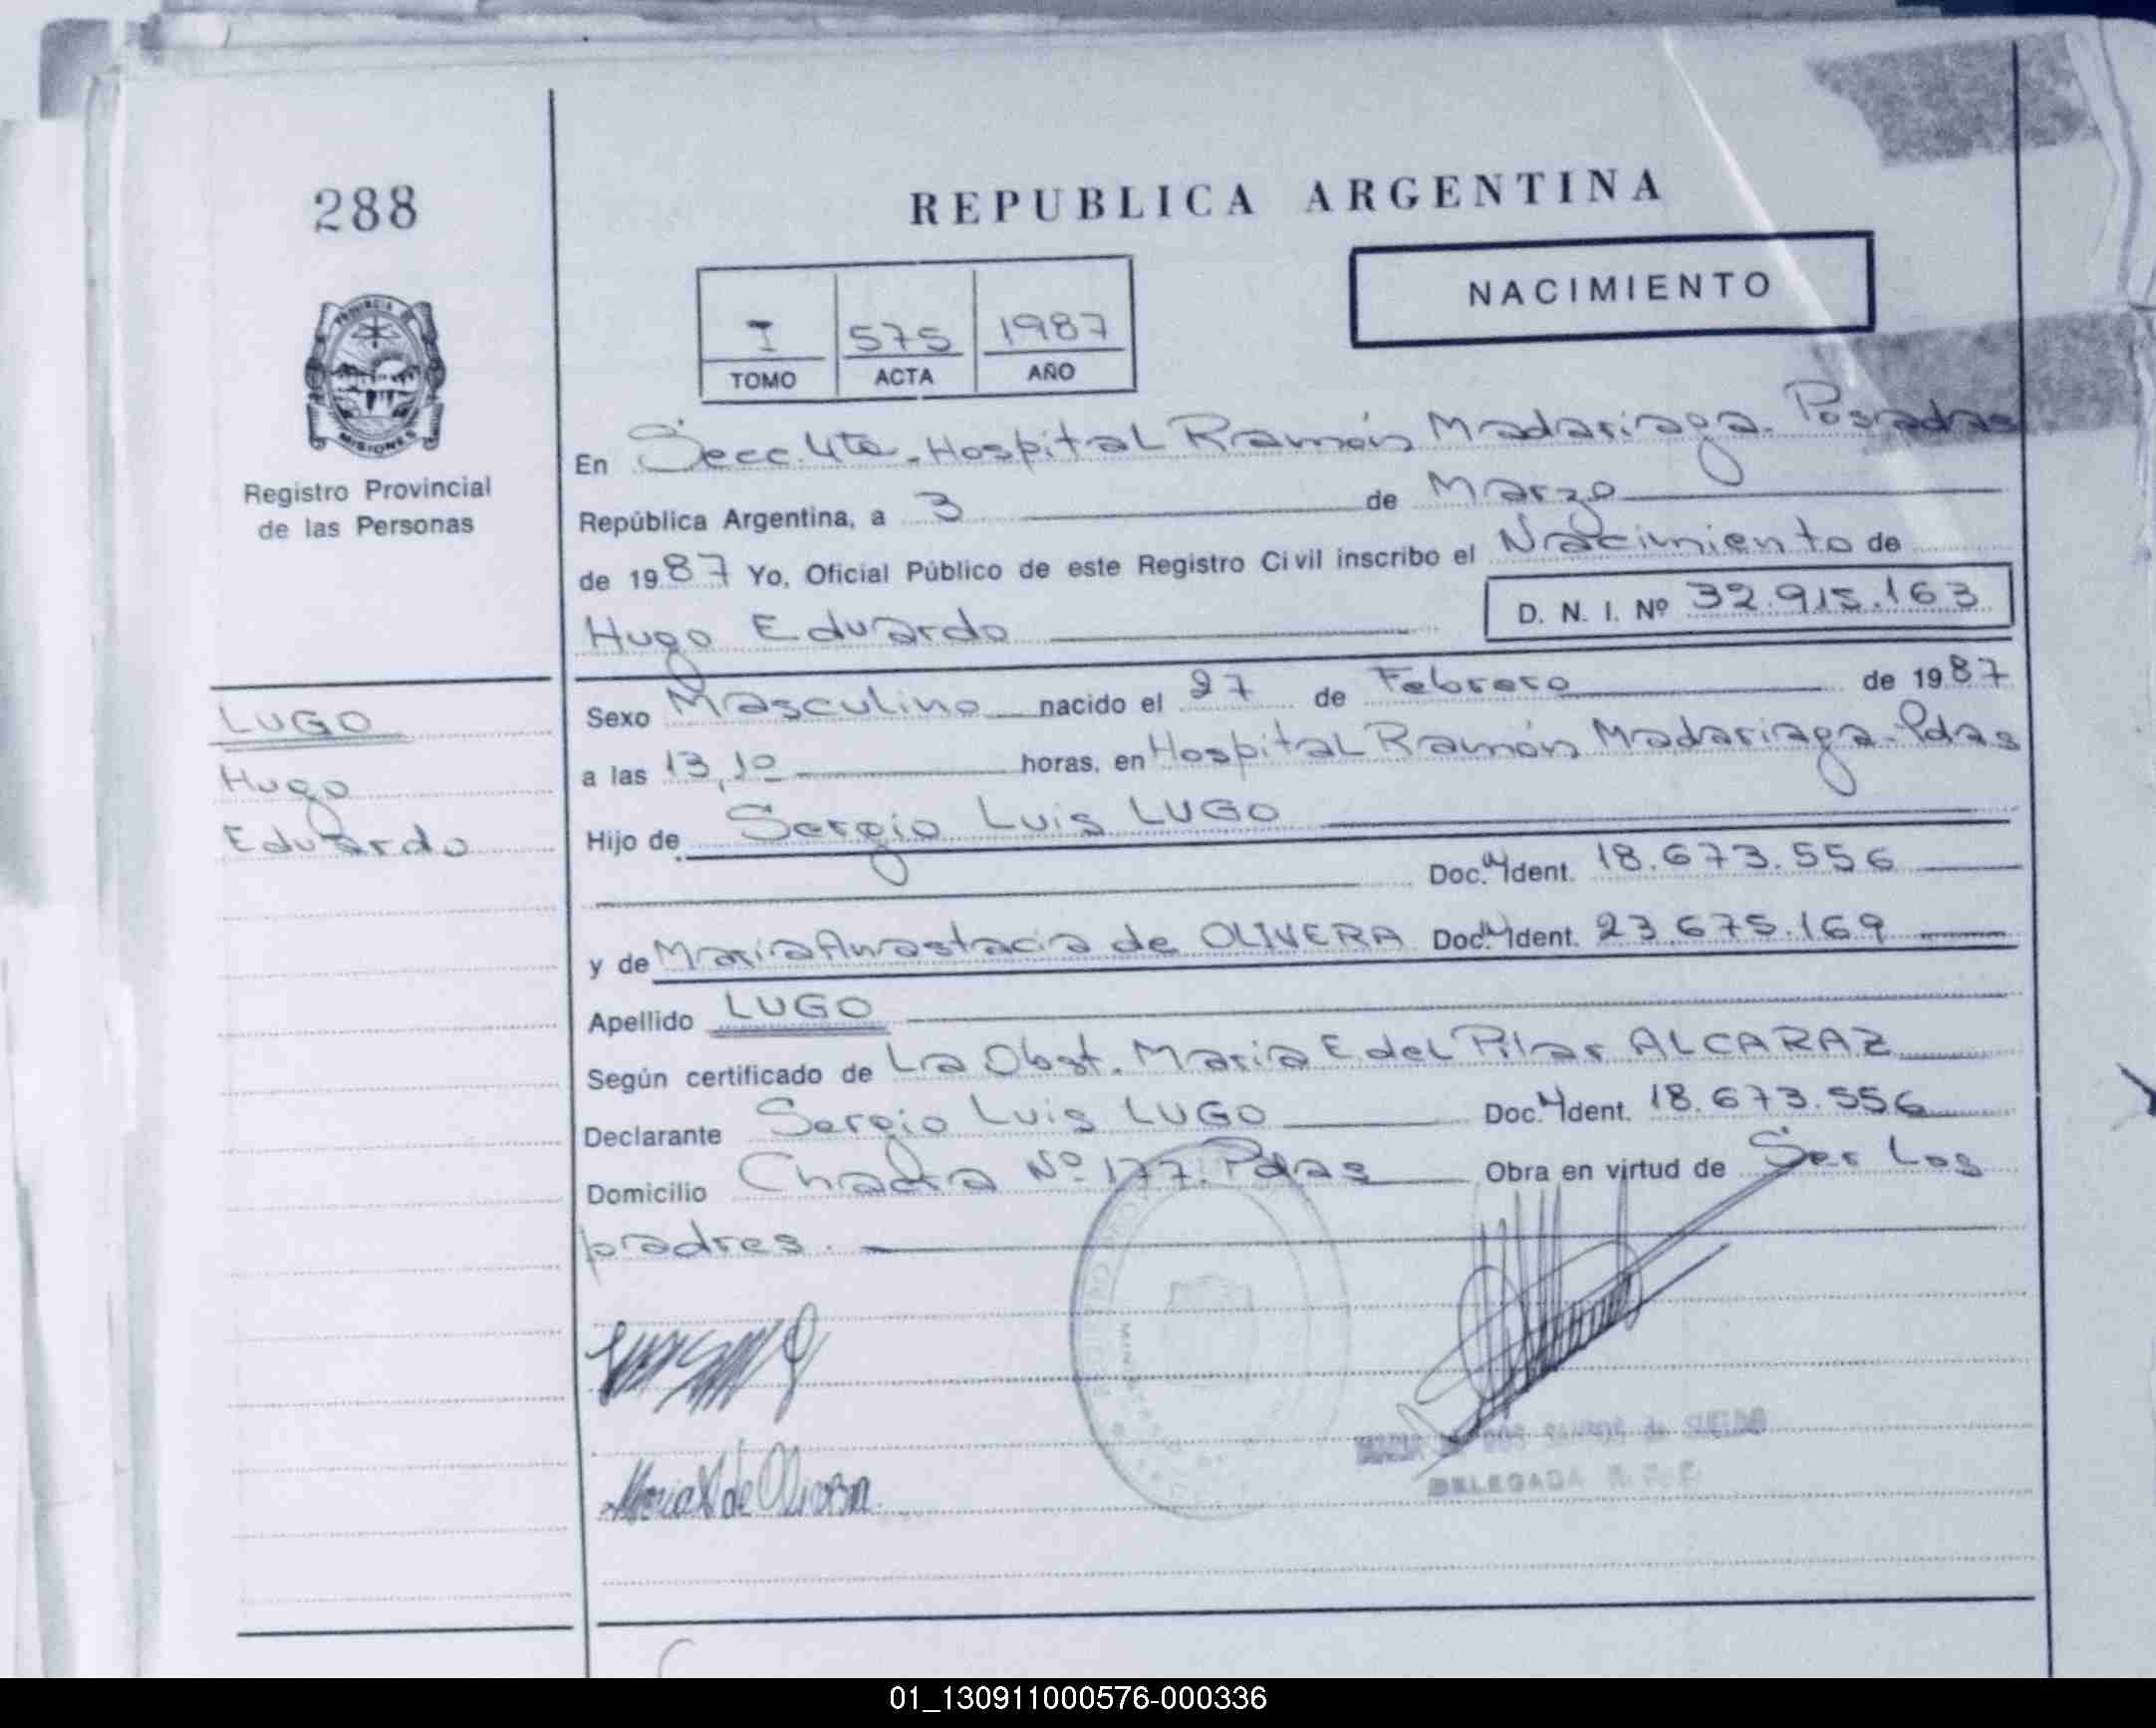 288
REPUBLICA ARGENTINA
NACIMIENTO
I 575 1987
TOMO ACTA AÑO
PROVINCIA D
MISIONES
Registro Provincial
de las Personas
En Secc. 4ta. Hospital Ramón Madariaga. Posadas
República Argentina, a 3 de Marzo
de 1987 Yo, Oficial Público de este Registro Civil inscribo el Nacimiento de
Hugo Eduardo D. N. I. Nº 32.915.163
LUGO
Hugo
Eduardo
Sexo Masculino nacido el 27 de Febrero de 1987
a las 13,10 horas, en Hospital Ramón Madariaga - Pdas
Hijo de Sergio Luis LUGO
Doc. Ident. 18.673.556
y de María Anastacia de OLIVERA Doc. Ident. 23.675.169
Apellido LUGO
Según certificado de La Obst. María E. del Pilar ALCARAZ
Declarante Sergio Luis LUGO Doc. Ident. 18.673.556
Domicilio Chacra Nº 177. Pdas Obra en virtud de Ser Los
padres.
Maria A de Olivera
DELEGADA
01_130911000576-000336